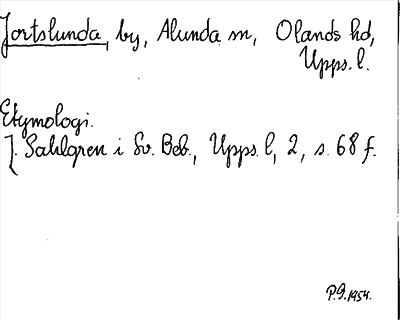 Jortslunda, by, Alunda sn, Olands hd,
Upps. l.
Etymologi.
J. Sahlgren i Sv. Beb., Upps. l, 2, s. 68 f.
P.G. 1954.